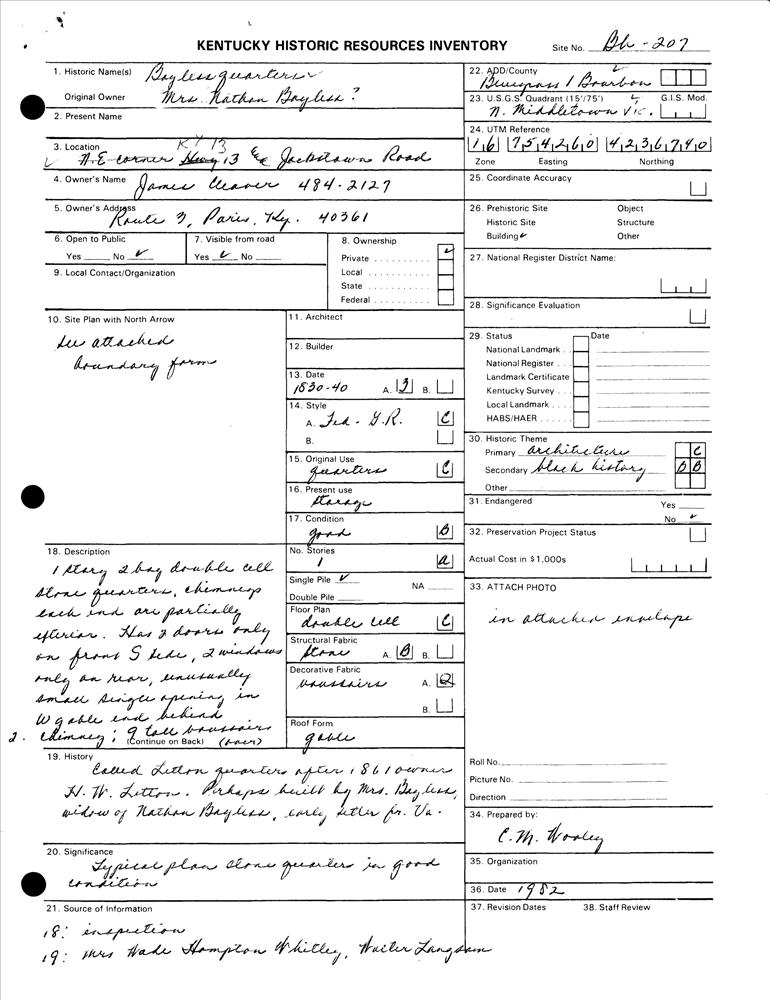 KENTUCKY HISTORIC RESOURCES INVENTORY
Site No. Bh - 207
1. Historic Name(s) Bayless quarters
Original Owner Mrs. Nathan Bayless?
2. Present Name
3. Location KY 13
N.E corner Hwy 13 Jackstown Road
4. Owner's Name James Cleaver 484-2127
5. Owner's Address
Route 3, Paris, Ky. 40361
6. Open to Public
Yes No ✓
7. Visible from road
Yes ✓ No
8. Ownership
Private ✓
Local
State
Federal
9. Local Contact/Organization
10. Site Plan with North Arrow
See attached
boundary form
11. Architect
12. Builder
13. Date
1830-40 A. 3 B.
14. Style
A. Fed - G.R. C
B.
15. Original Use
quarters C
16. Present use
storage
17. Condition
good B
18. Description
1 story 2 bay double cell
stone quarters, chimneys
each end are partially
exterior. Has 2 doors only
on front S side, 2 windows
only on rear, unusually
small single opening in
W gable end behind
2. chimney; 9 tall voussoirs
(Continue on Back) (over)
No. Stories
1 A
Single Pile ✓ NA
Double Pile
Floor Plan
double cell C
Structural Fabric
stone A. B B.
Decorative Fabric
voussoirs A. Q
B.
Roof Form
gable
19. History
Called Letton quarters after 1861 owner
H. W. Letton. Perhaps built by Mrs. Bayless,
widow of Nathan Bayless, early settler fr. Va.
20. Significance
Typical plan stone quarters in good
condition
21. Source of Information
18: inspection
19: Mrs Wade Hampton Whitley, Walter Langsam
22. ADD/County
Bluegrass / Bourbon
23. U.S.G.S. Quadrant (15'/75') G.I.S. Mod.
N. Middletown Vic.
24. UTM Reference
16 754260 4236740
Zone Easting Northing
25. Coordinate Accuracy
26. Prehistoric Site Object
Historic Site Structure
Building ✓ Other
27. National Register District Name:
28. Significance Evaluation
29. Status Date
National Landmark
National Register
Landmark Certificate
Kentucky Survey
Local Landmark
HABS/HAER
30. Historic Theme
Primary architecture C
Secondary black history B B
Other
31. Endangered Yes
No ✓
32. Preservation Project Status
Actual Cost in $1,000s
33. ATTACH PHOTO
in attached envelope
Roll No.
Picture No.
Direction
34. Prepared by:
C. M. Wooley
35. Organization
36. Date 1982
37. Revision Dates 38. Staff Review